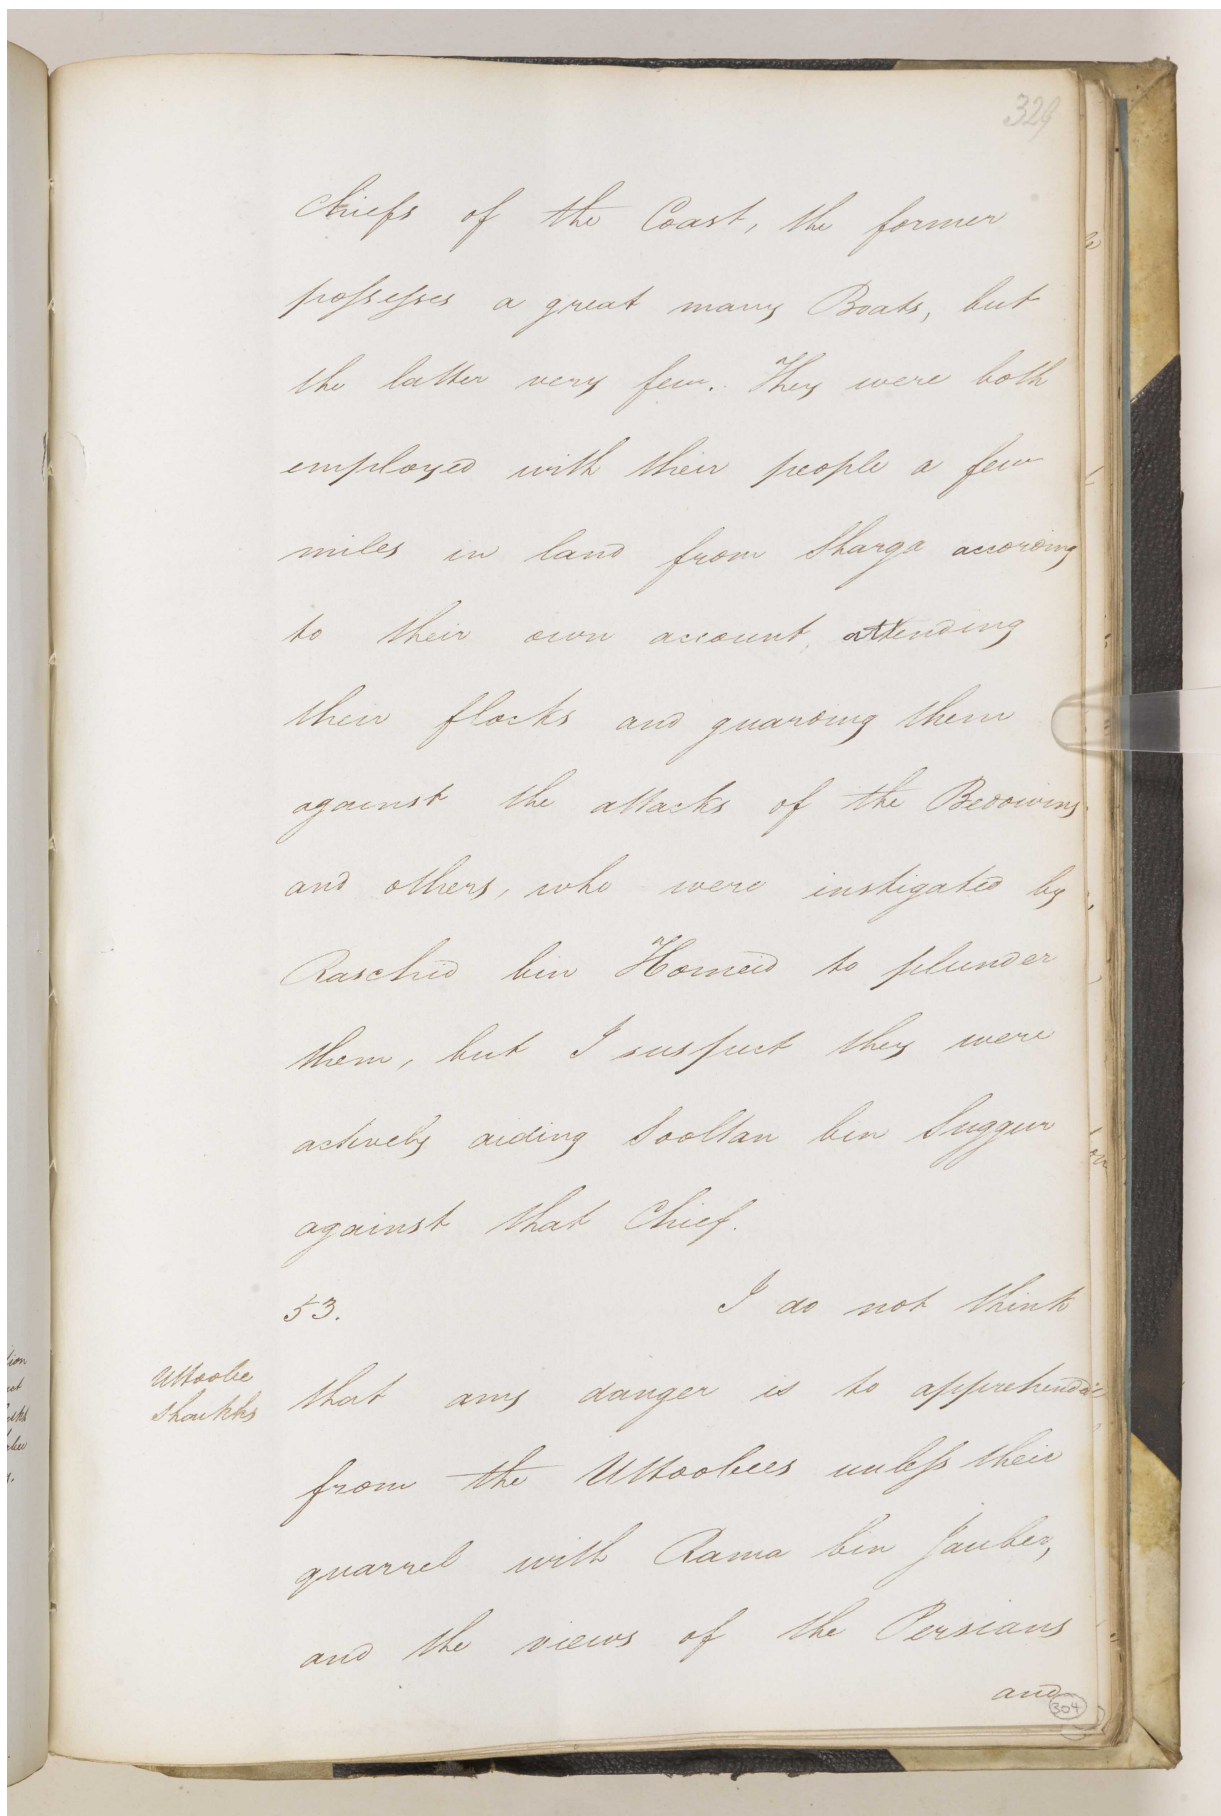 329
Chiefs of the Coast, the former
possesses a great many Boats, but
the latter very few. They were both
employed with their people a few
miles in land from Sharga according
to their own account, attending
their flocks and guarding them
against the attacks of the Bedowins
and others, who were instigated by
Raschid bin Homeid to plunder
them, but I suspect they were
actively aiding Sooltan bin Suggur
against that Chief.
53. I do not think
Uttoobee
Shaikhs
that any danger is to apprehended
from the Uttoobees unless their
quarrel with Rama bin Jauber,
and the views of the Persians
and
304